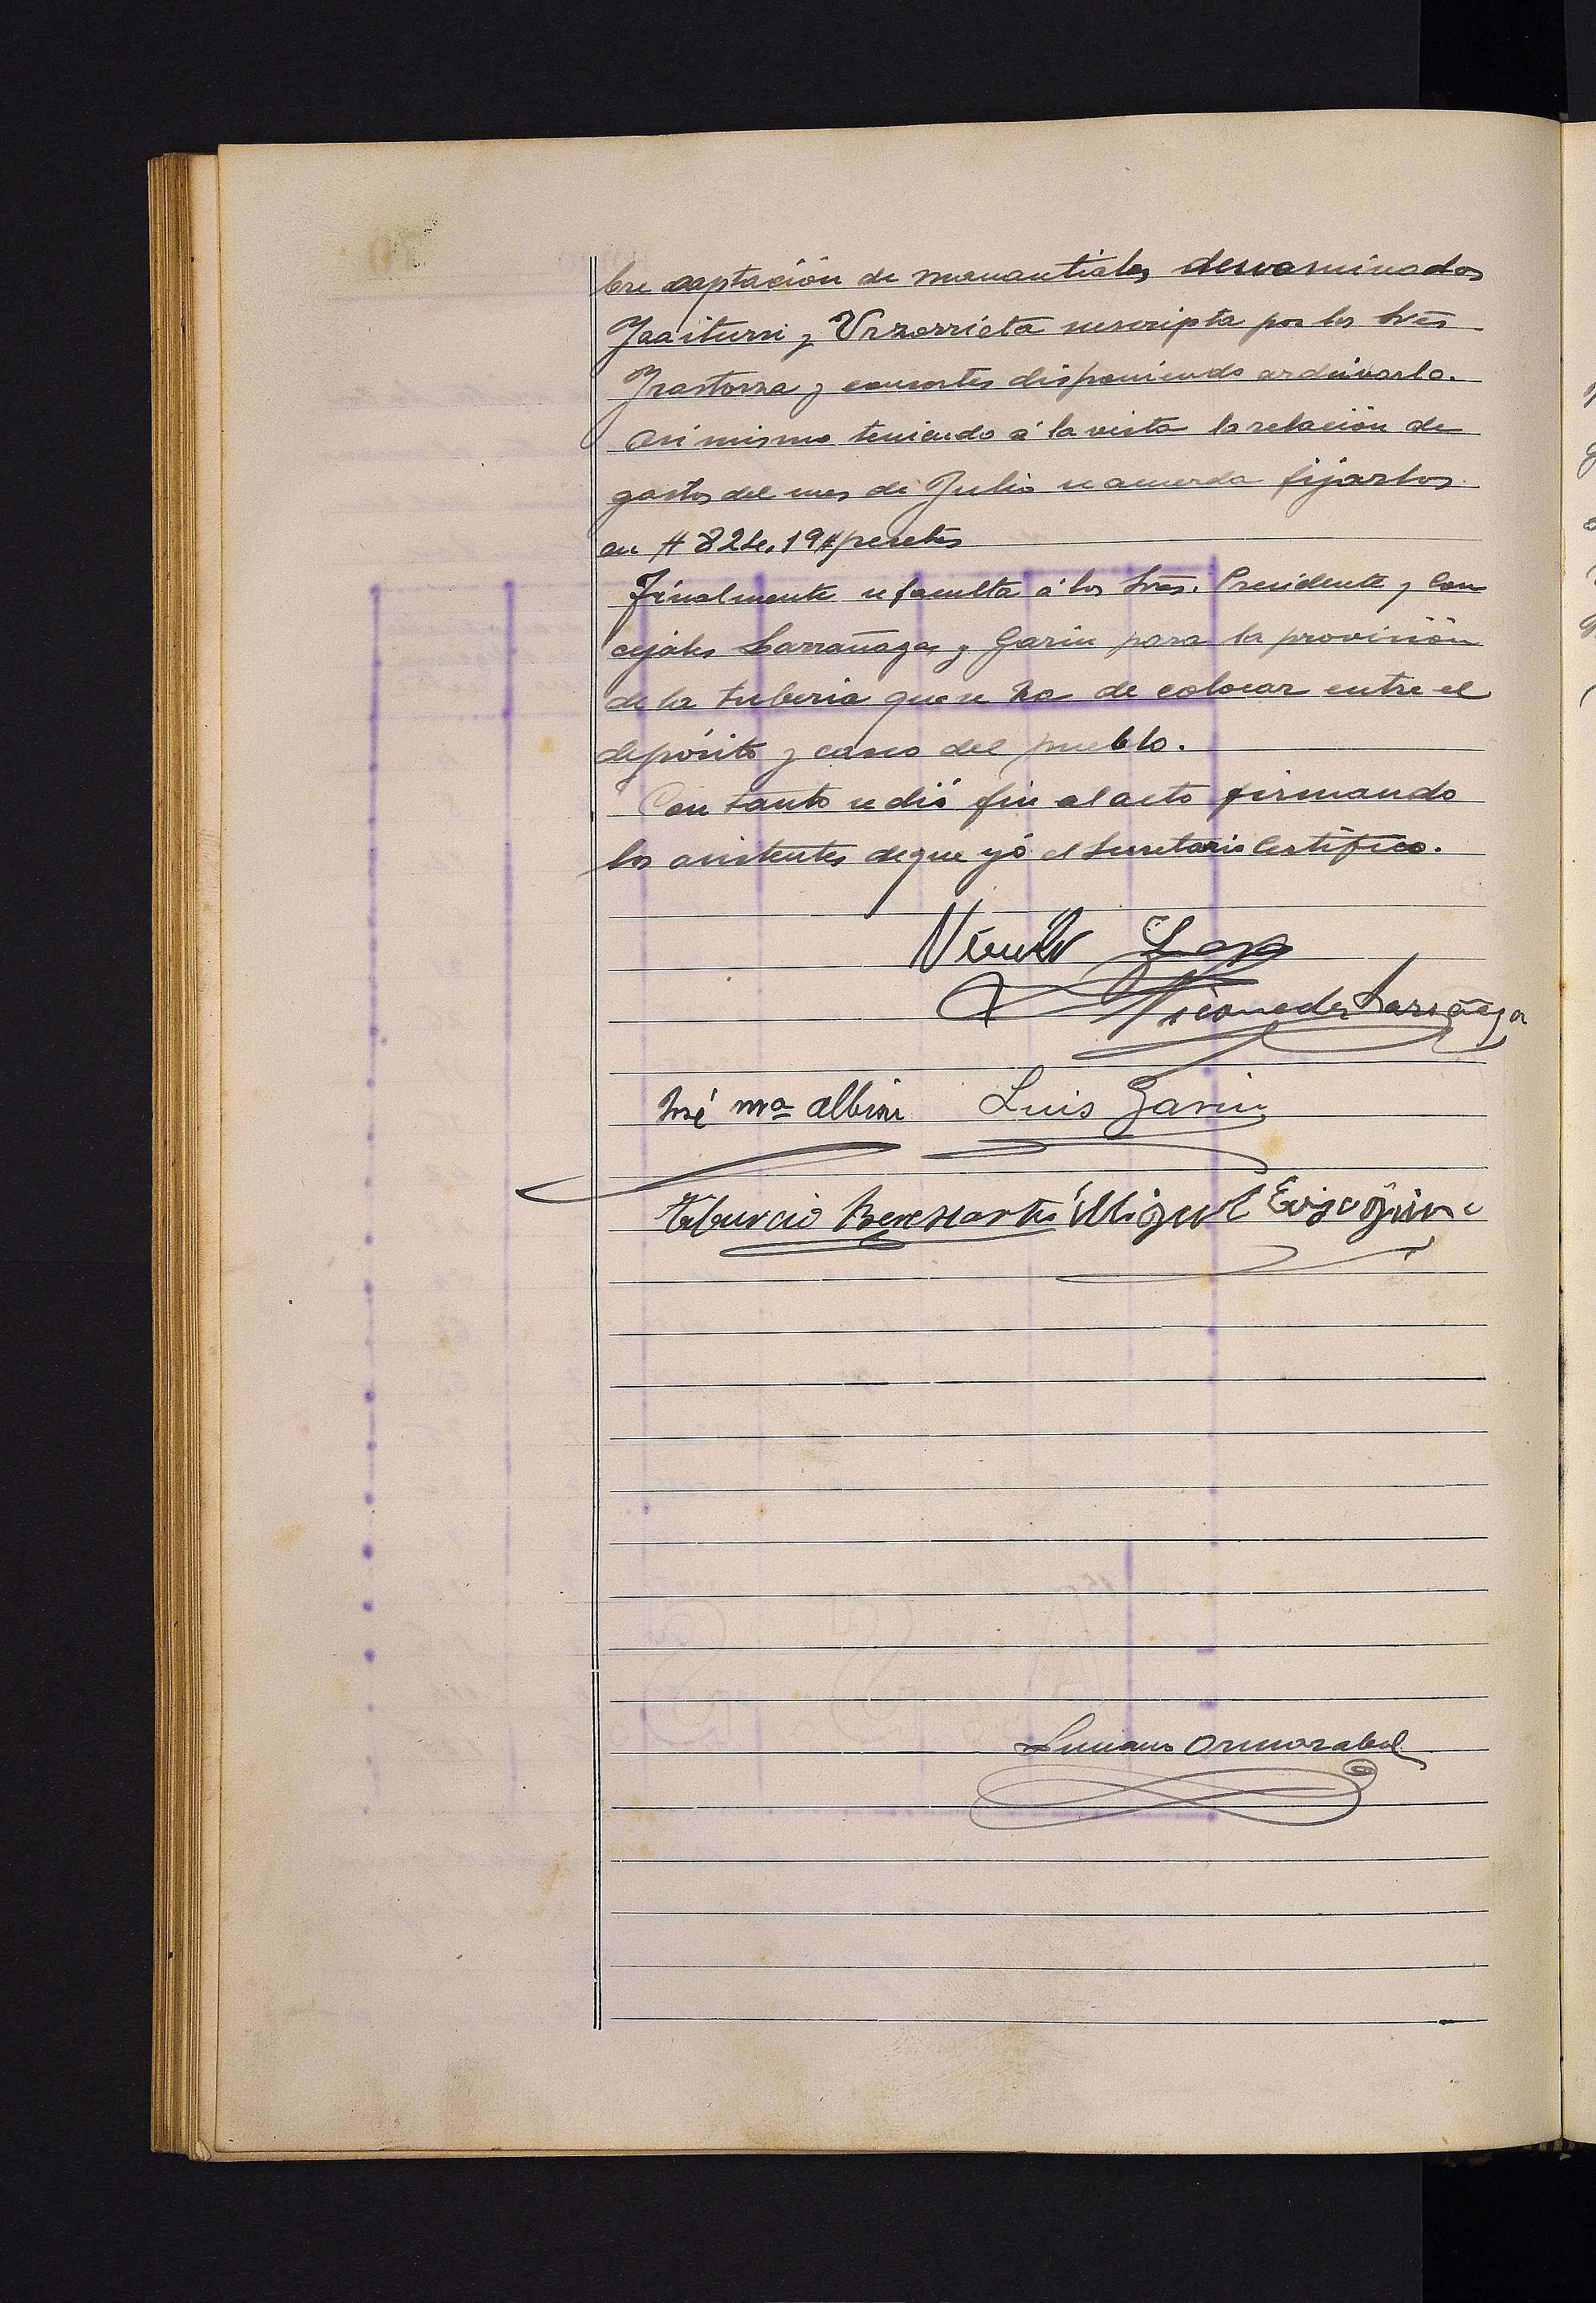 bre captación de manantiales denominados
Jaaiturri y Urzarrieta suscripta por los Sres
Irastorza y consortes disponiendo archivarlo.
Asi mismo teniendo á la vista la relación de
gastos del mes de Julio se acuerda fijarlos
en # 824,19 # pesetas
Finalmente se faculta á los Sres. Presidente y Con
cejales Larrañaga y Garin para la provisión
de la tuberia que se ha de colocar entre el
depósito y casco del pueblo.
Con tanto se dió fin al acto firmando
los asistentes de que yó el Secretario Certifico.
Nicomedes Larrañaga
José Mª Albisu Luis Garin
Tiburcio Beresiartu Miguel
Luciano Ormazabal